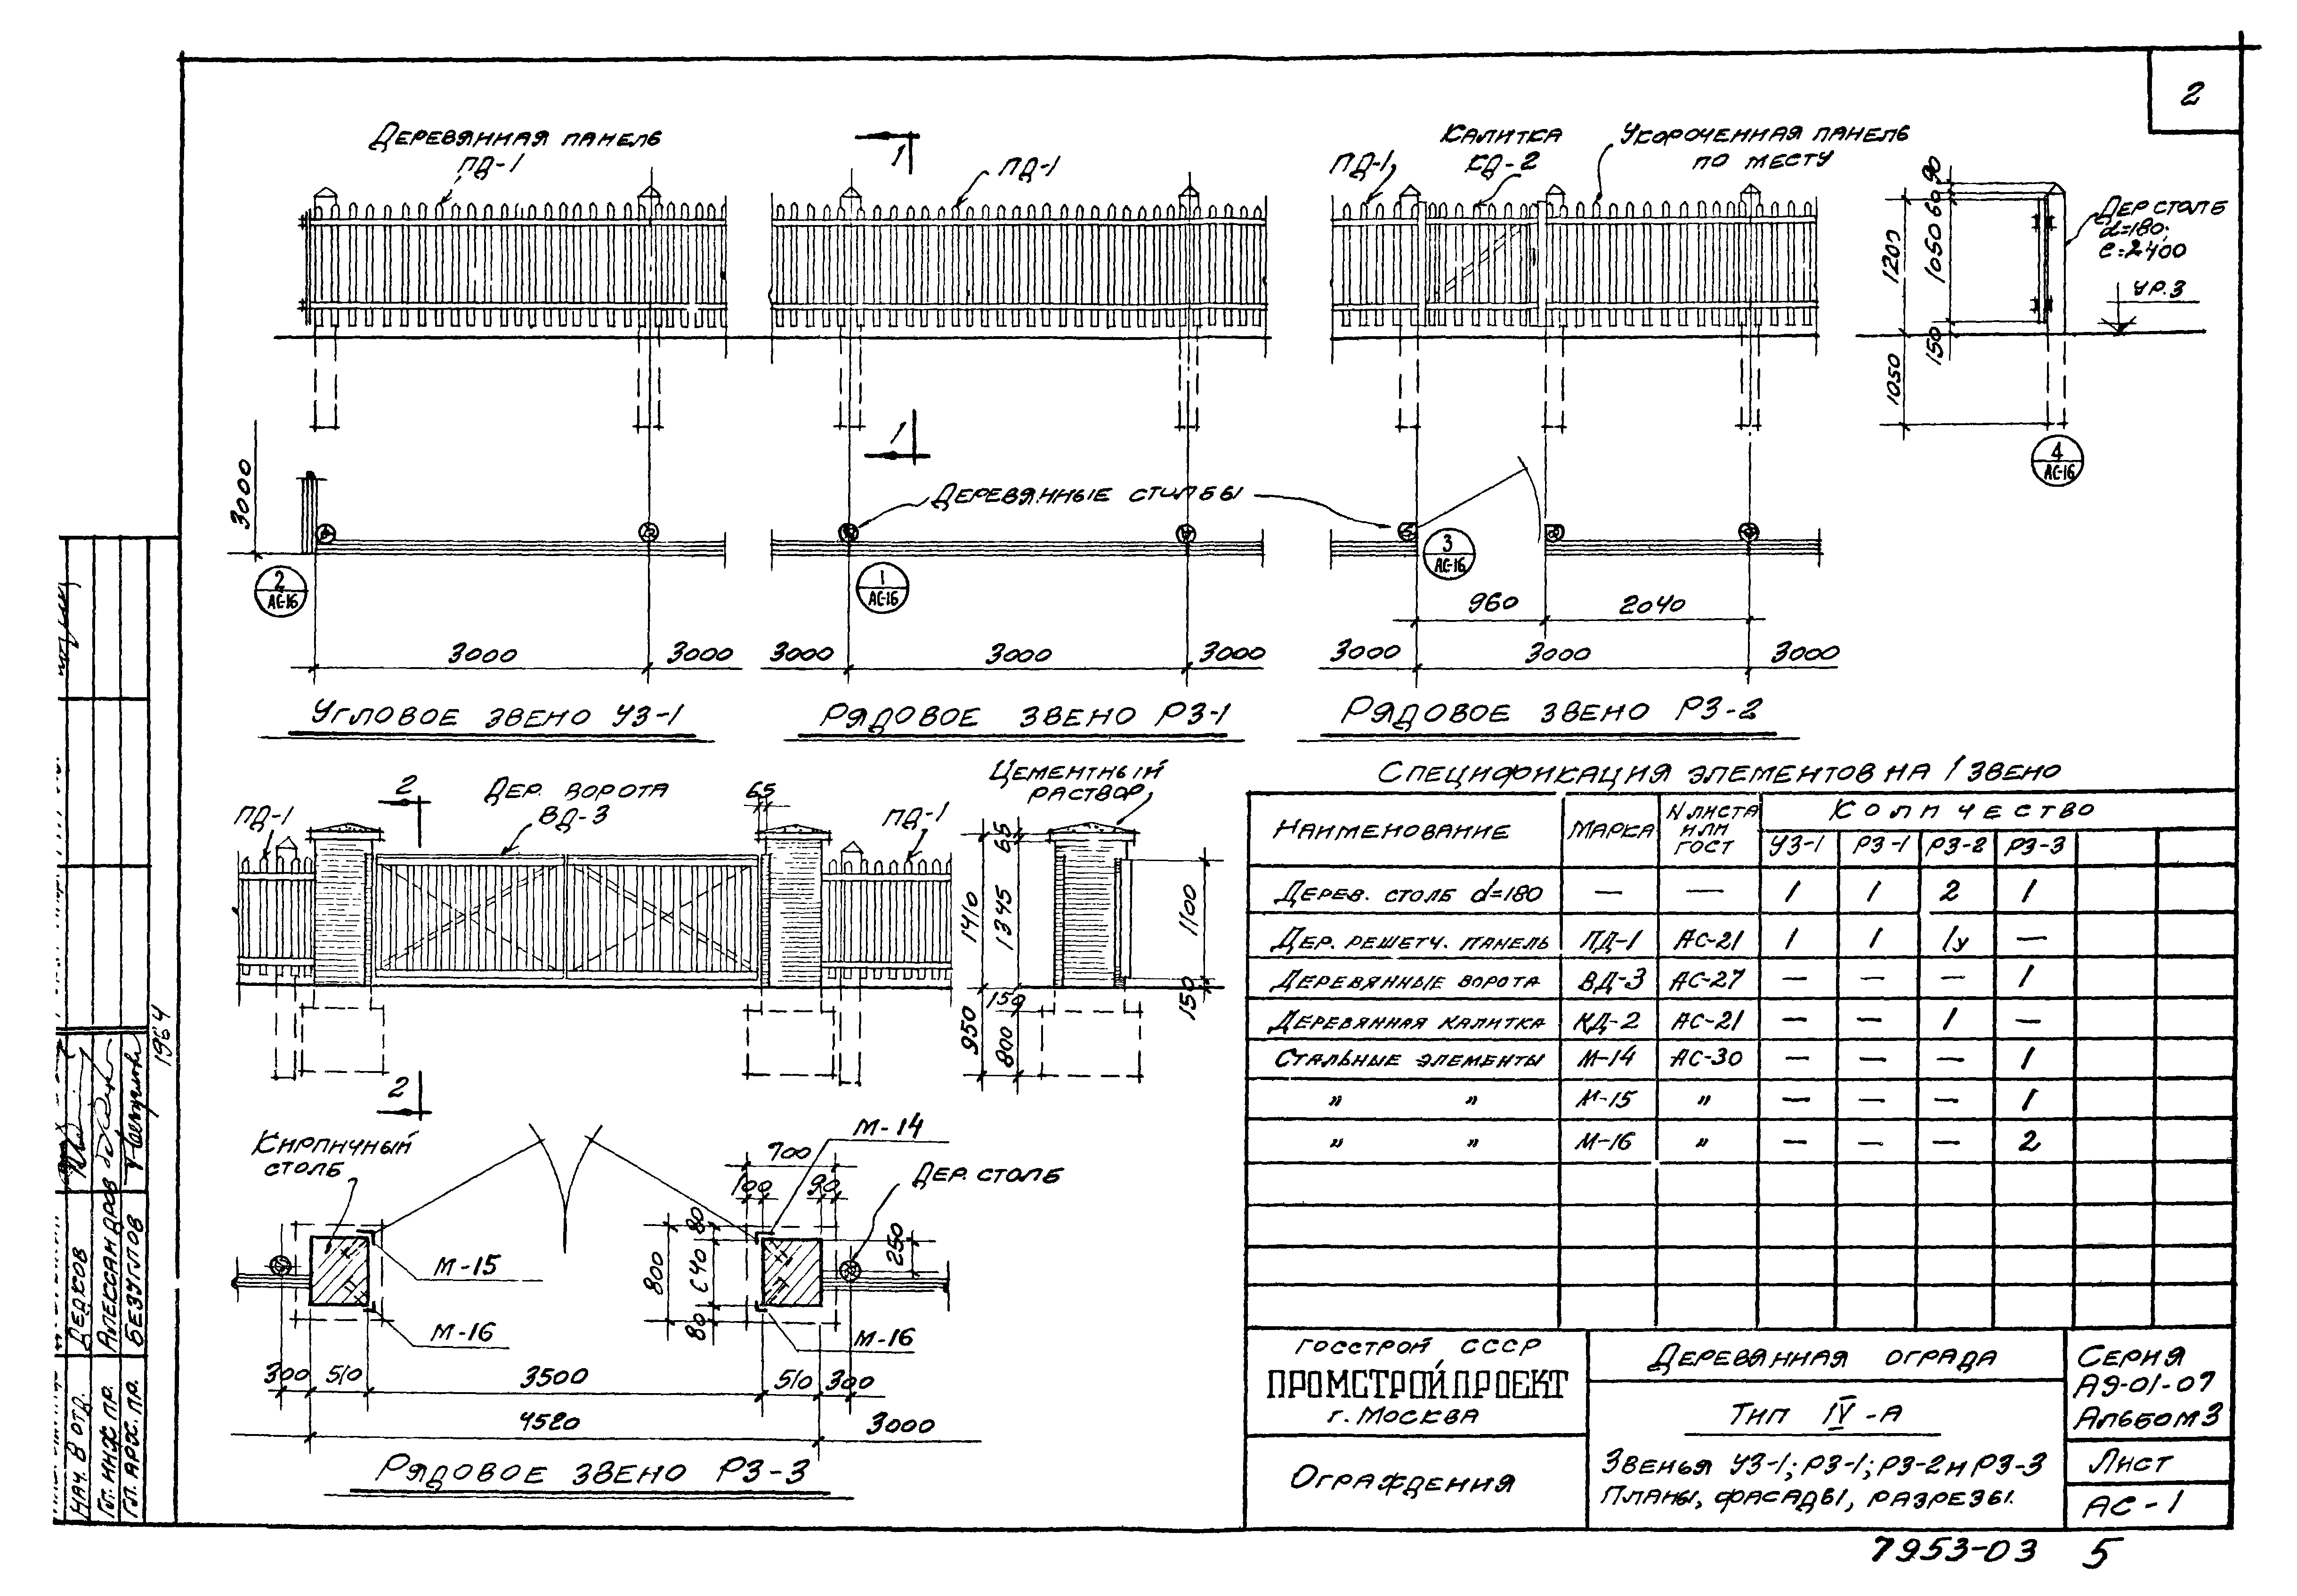 2
Деревянная панель
ПД-1
1
ПД-1
ПД-1
Калитка
КД-2
Укороченная панель
по месту
90
60
1050
150
1200
1050
Дер столб
d=180;
ℓ=2400
УР.З
4
АС-16
1
3000
Деревянные столбы
2
АС-16
1
АС-16
3
АС-16
960
2040
3000
3000
3000
3000
3000
3000
3000
3000
Угловое звено УЗ-1
Рядовое звено РЗ-1
Рядовое звено РЗ-2
ПД-1
2
Дер. ворота
ВД-3
65
ПД-1
Цементный
раствор
65
1410
1345
1100
150
150
950
800
2
Кирпичный
столб
М-14
700
100
90
Дер. столб
80
640
80
800
250
М-15
М-16
М-16
300
510
3500
510
300
4520
3000
Рядовое звено РЗ-3
Спецификация элементов на 1 звено
Наименование
Марка
N листа
или
ГОСТ
Количество
УЗ-1 РЗ-1 РЗ-2 РЗ-3
Дерев. столб d=180 — — 1 1 2 1
Дер. решетч. панель ПД-1 АС-21 1 1 1у —
Деревянные ворота ВД-3 АС-27 — — — 1
Деревянная калитка КД-2 АС-21 — — 1 —
Стальные элементы М-14 АС-30 — — — 1
" " М-15 " — — — 1
" " М-16 " — — — 2
Госстрой СССР
ПРОМСТРОЙПРОЕКТ
г. Москва
Ограждения
Деревянная ограда
Тип IV-А
Звенья УЗ-1; РЗ-1; РЗ-2 и РЗ-3
Планы, фасады, разрезы.
Серия
АЭ-01-07
Альбом 3
Лист
АС-1
7953-03 5
Нач. в отд. Дедков
Гл. инж. пр. Александров
Гл. арх. пр. Безуглов
1964